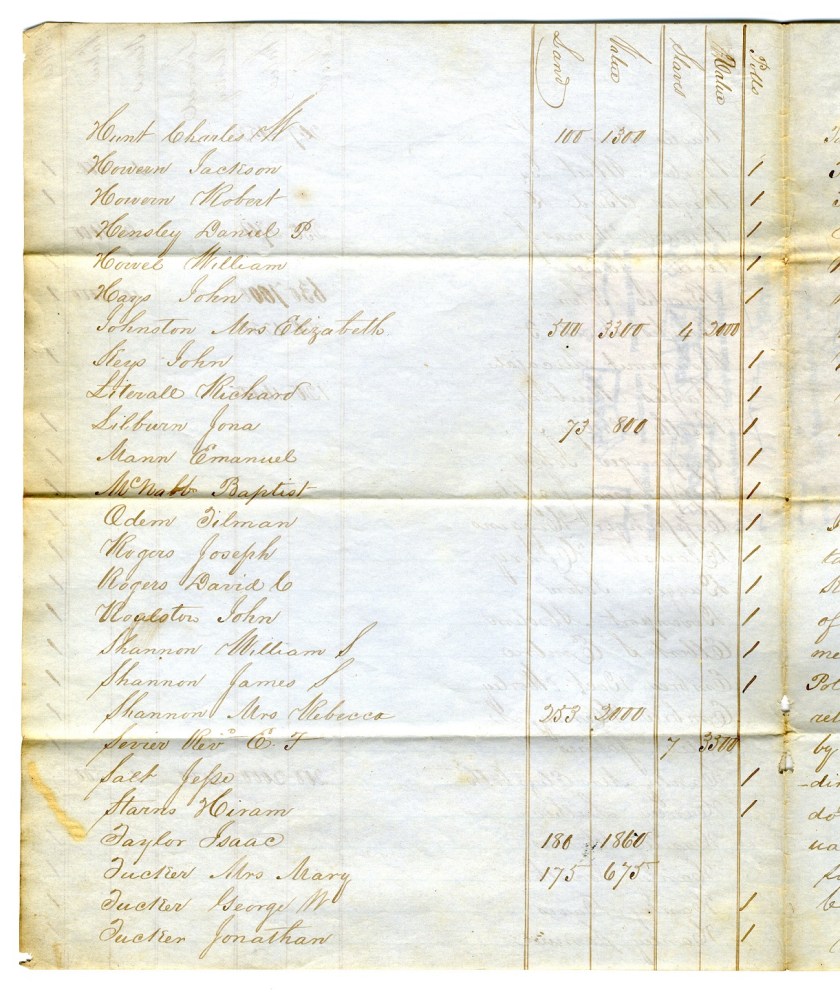 Land Value Slaves Value Polls
Hunt Charles W 100 1300
Howern Jackson /
Howern Robert /
Hensley Daniel P. /
Howel William /
Hays John /
Johnston Mrs Elizabeth 500 3300 4 2000
Keys John /
Literall Richard /
Lilburn Jona 73 800 /
Mann Emanuel /
McNabb Baptist /
Odem Tilman /
Rogers Joseph /
Rogers David C /
Roalston John /
Shannon William S /
Shannon James S /
Shannon Mrs Rebecca 253 2000
Sevier Revd E. F 7 3300
Salt Jesse /
Starns Hiram /
Taylor Isaac 180 1860
Tucker Mrs Mary 175 675
Tucker George W /
Tucker Jonathan /
of
me
Pol
by
do